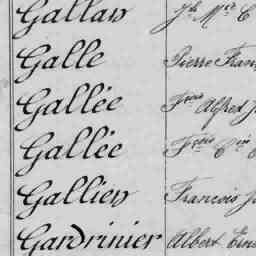 Gallaw
Galle Pierre Fran
Gallée Fçois Alfred J
Gallée Fçois
Gallien Francois J
Gardrinier Albert Erns